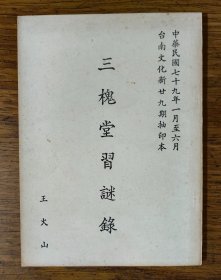 中華民國七十九年一月至六月
台南文化新廿九期抽印本
三槐堂習謎錄
王火山